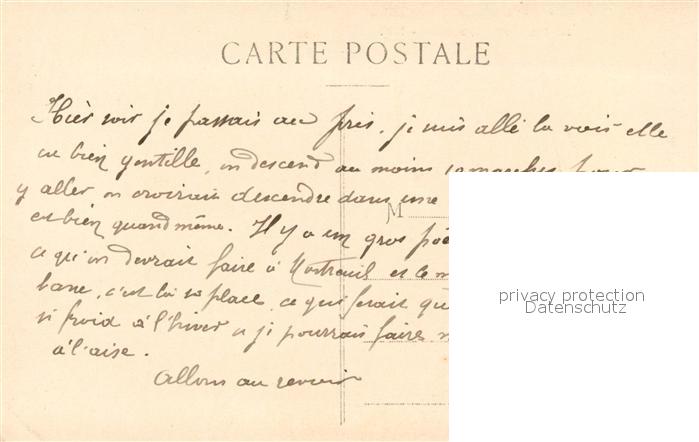 CARTE POSTALE
Hièr soir je passais au près, je suis allé la voir elle
est bien gentille, on descend au moins 10 marches pour
y aller on croirait descendre dans une
M
est bien quand même. Il y a un gros poê
ce qu'on devrait faire à Montreuil et le m
bane, c'est là sa place, ce qui ferait qu
si froid à l'hiver et je pourrais faire
à l'aise.
Allons au revoir
privacy protection
Datenschutz